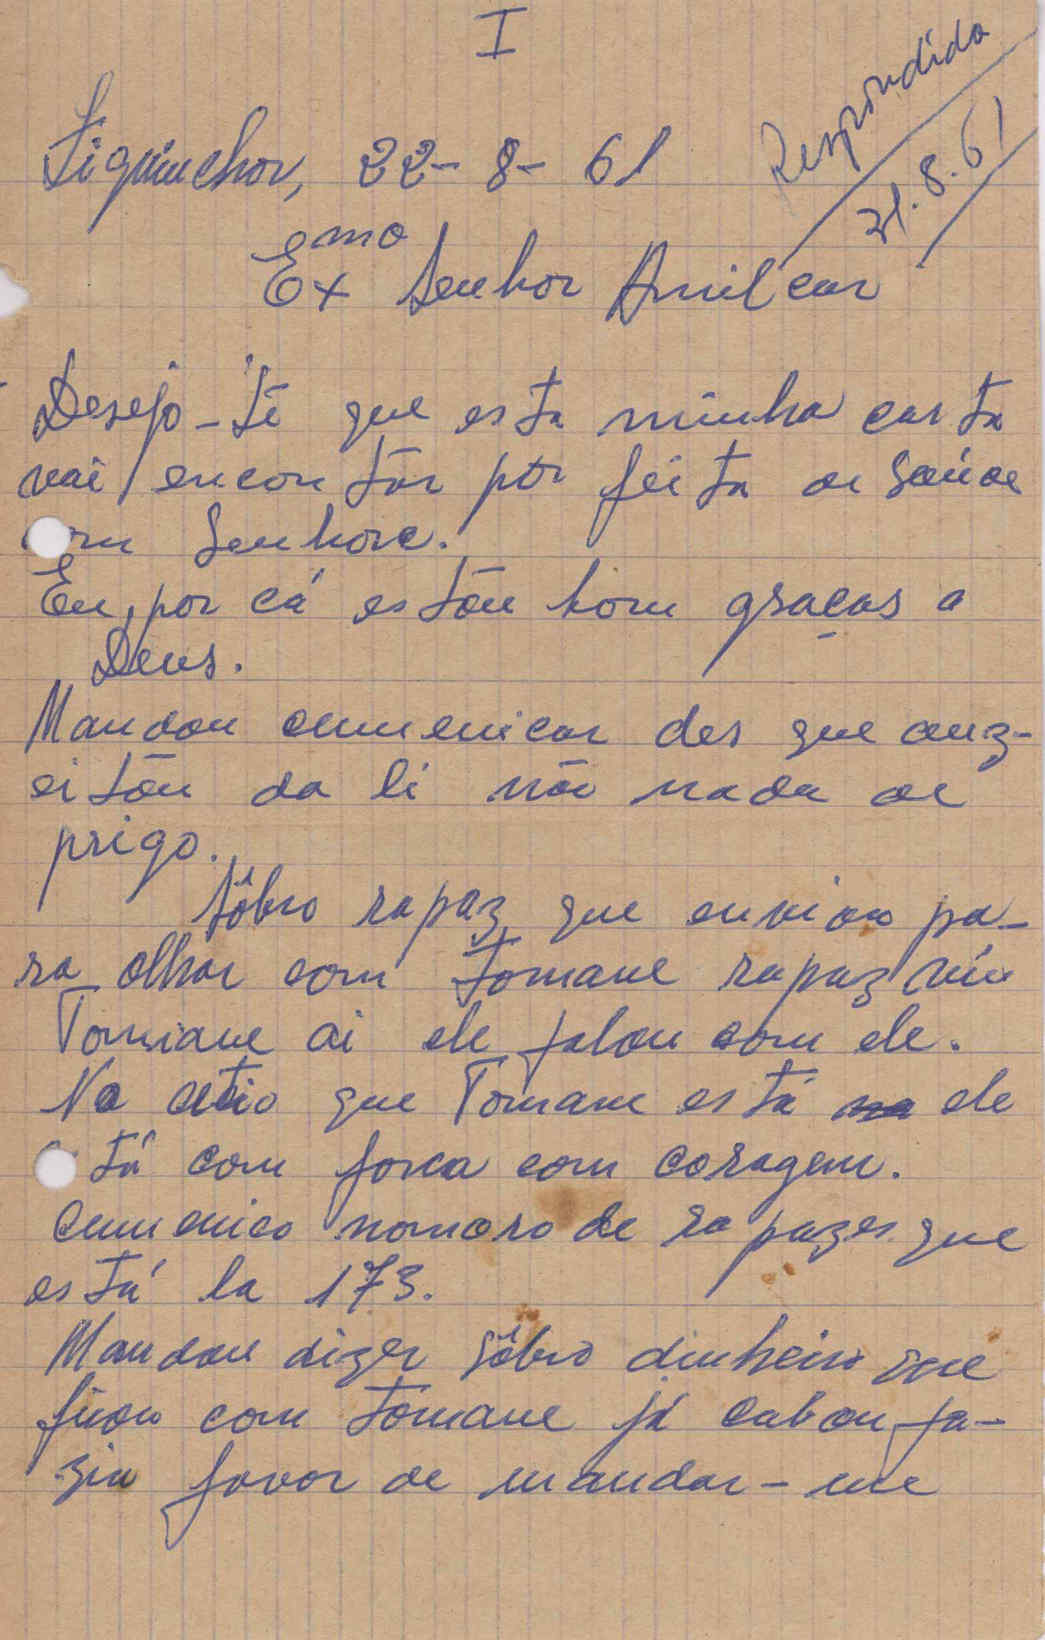 I
Respondida
31.8.61
Siguinchor, 22-8-61
Exmo Senhor Amilcar
Desejo-te que esta minha carta
vai encontar por feita de saúde
Senhore.
Eu, por cá estou bom graças a
Deus.
Mandou cumenicar des que auz-
eitou da li não nada de
prigo.
Sôbro rapaz que enviou pa-
ra olhar com Tomane rapaz viu
Tomane ai ele falou com ele.
No citio que Tomane está ele
tá com forca com coragem.
Cumenico nomoro de rapazes que
está la 173.
Mandou dizer sôbro dinheiro que
ficou com Tomane já cabou fa-
zia favor de mandar-me